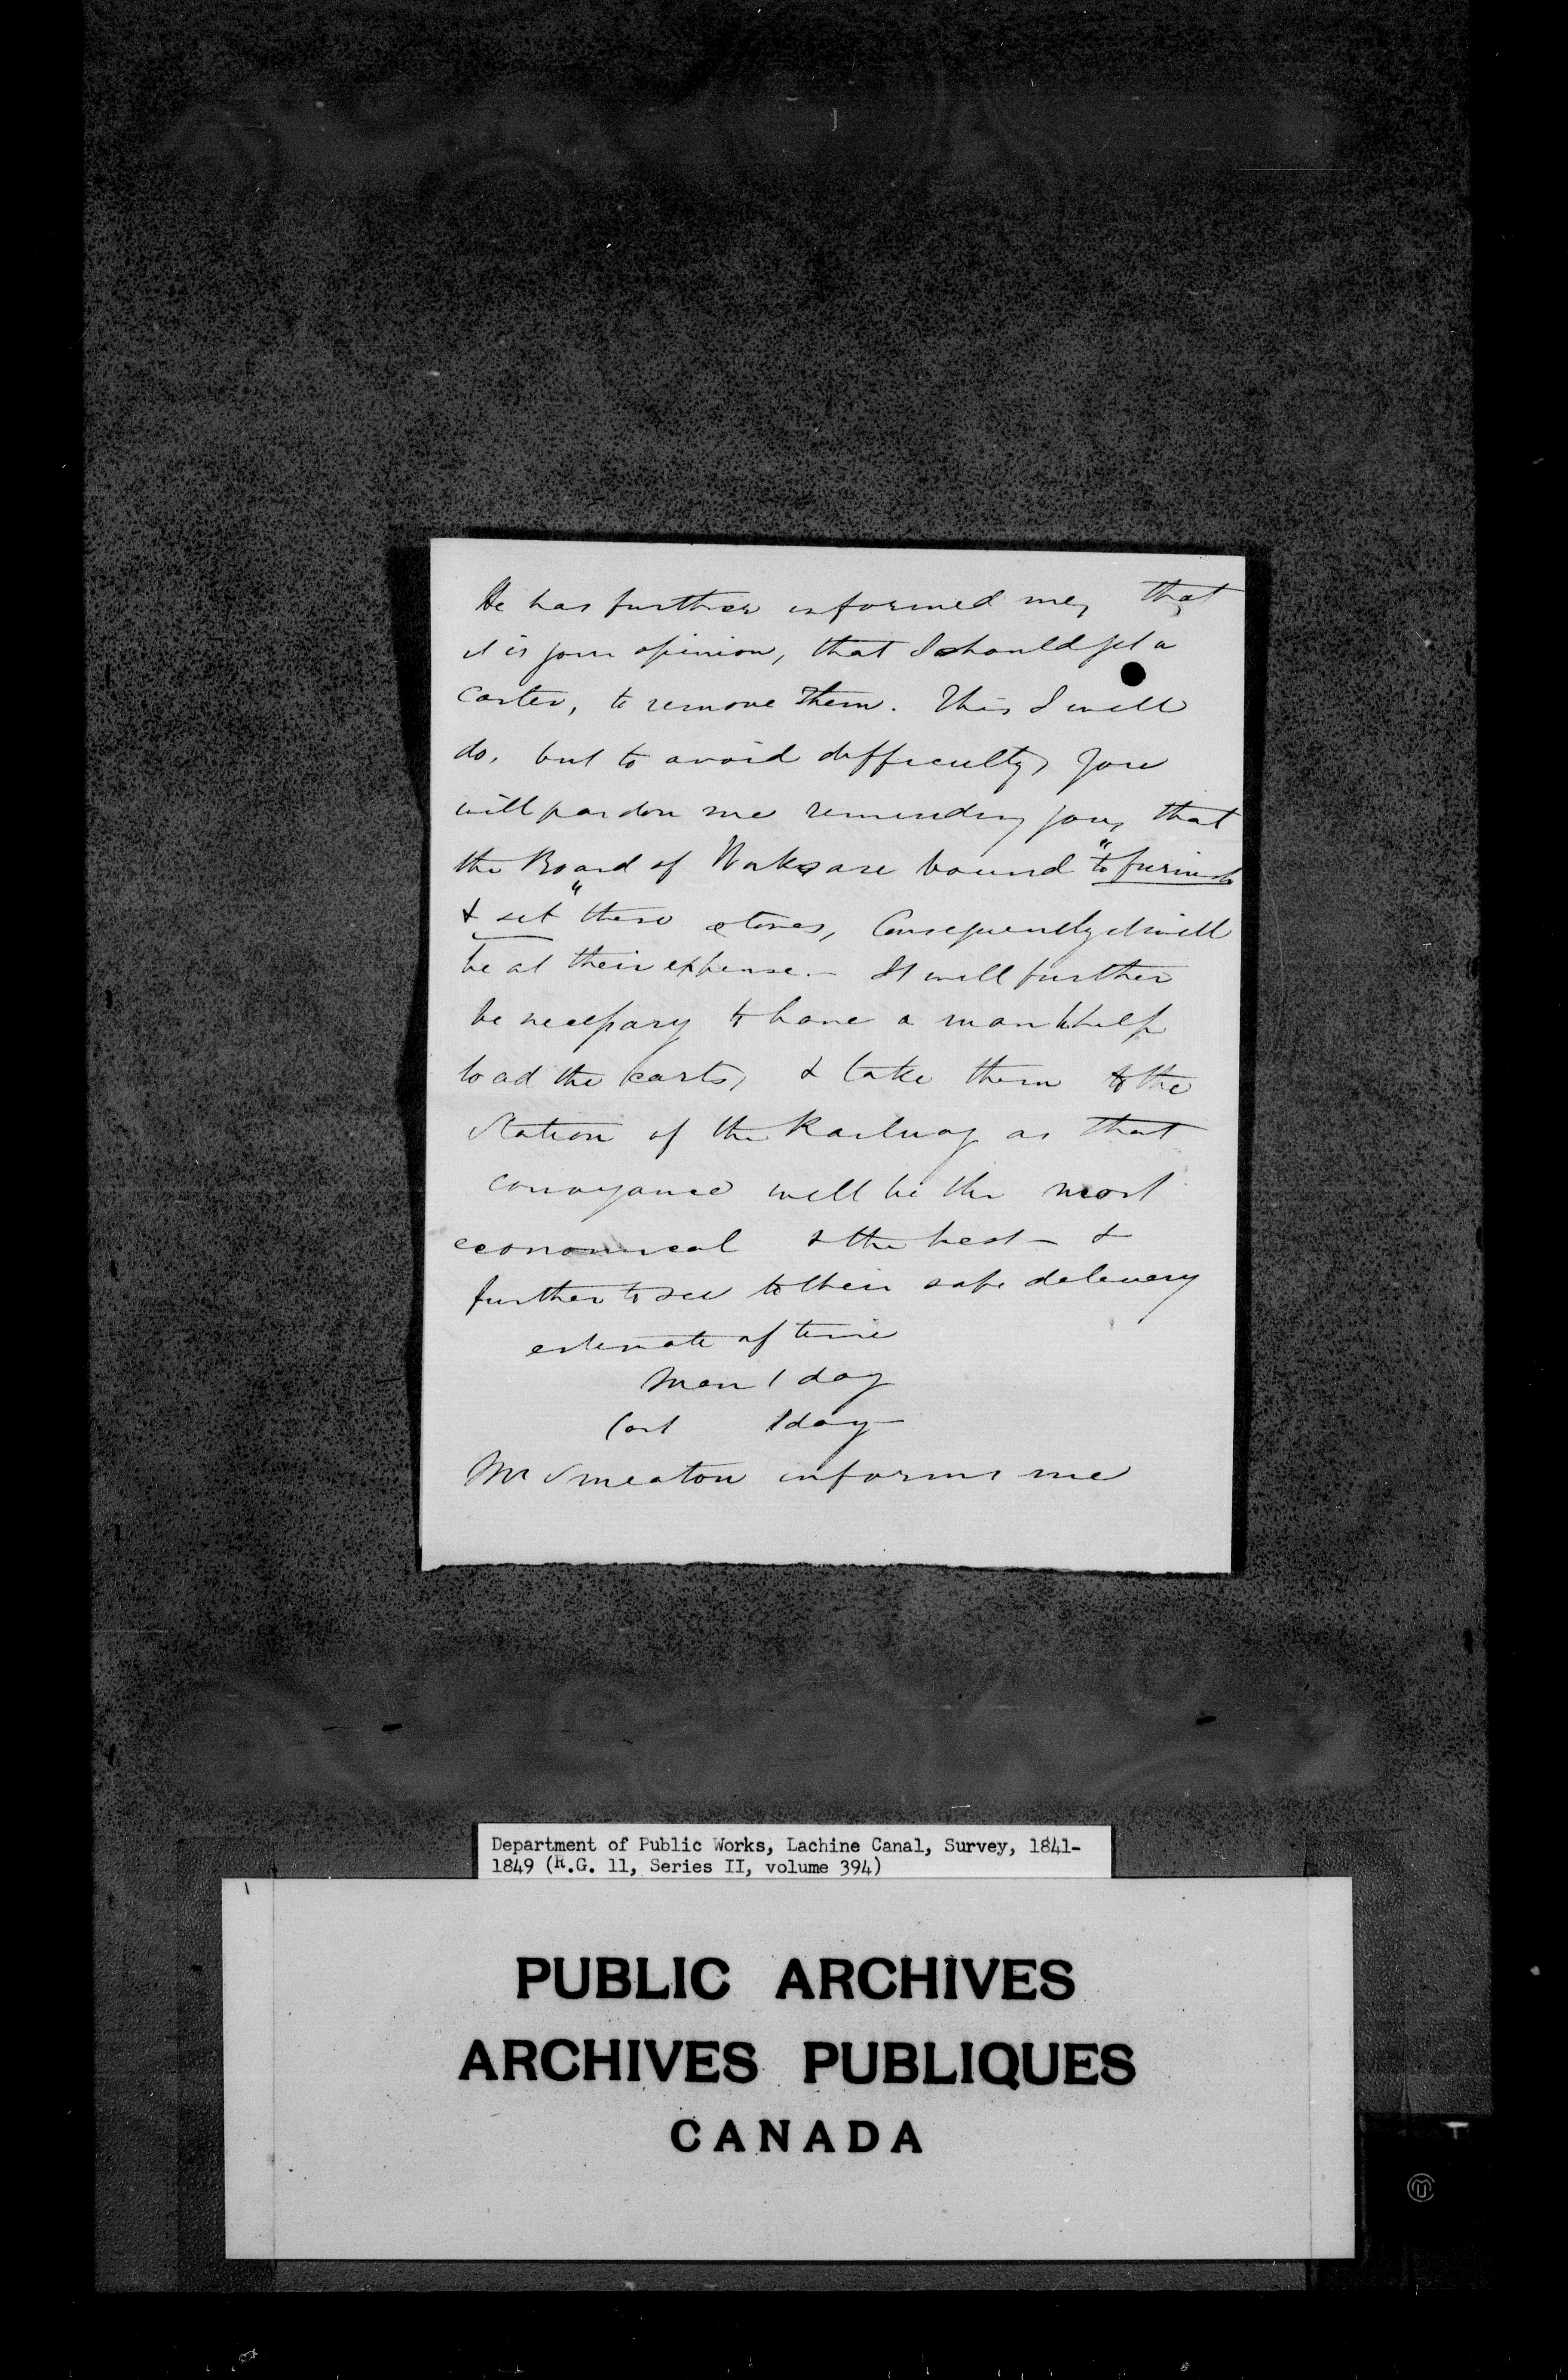 He has further informed me, that
it is your opinion, that I should get a
carter, to remove them. This I will
do, but to avoid difficulty, you
will pardon me reminding you, that
the Board of Works are bound "to furnish
& set" these stones, Consequently it will
be at their expense. - It will further
be necessary to have a man to help
load the carts, & take them to the
Station of the Railway as that
conveyance will be the most
economical & the best - &
further to see to their safe delivery
estimate of time
Man 1 day
Cart 1 day
Mr Smeaton informs me
Department of Public Works, Lachine Canal, Survey, 1841-
1849 (R.G. 11, Series II, volume 394)
PUBLIC ARCHIVES
ARCHIVES PUBLIQUES
CANADA